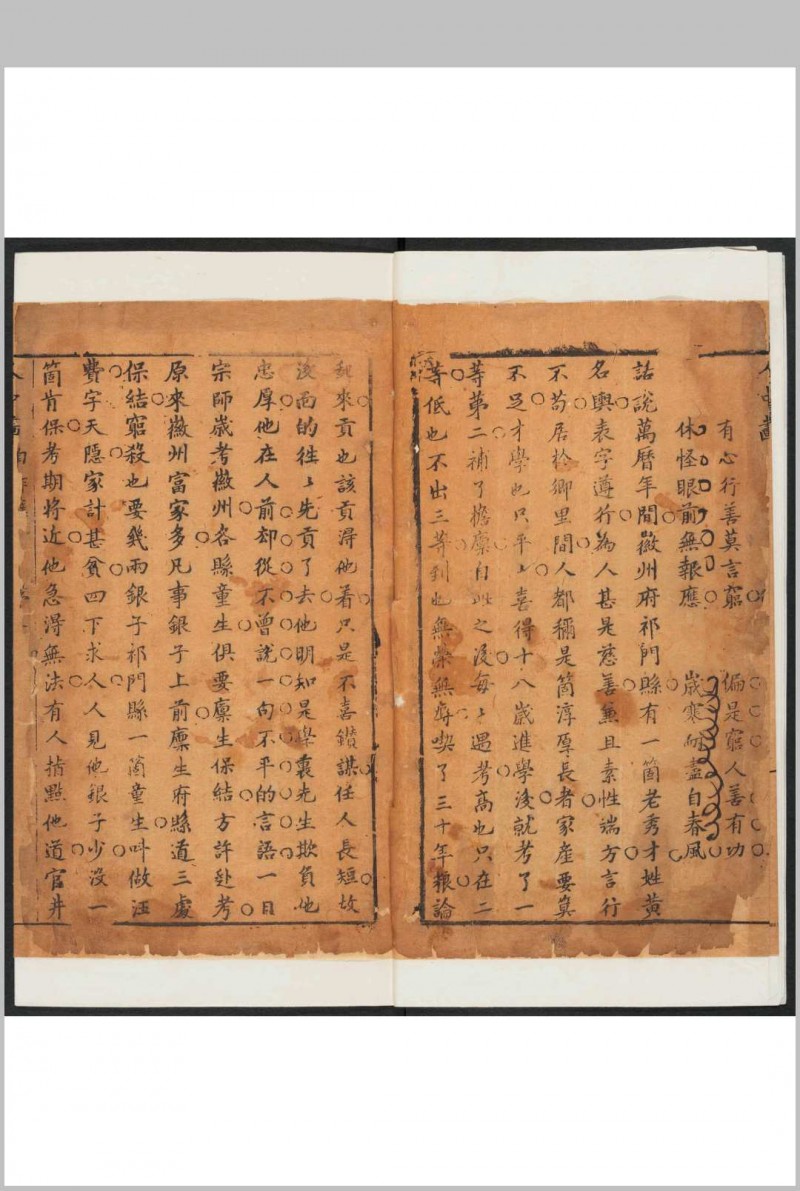 有心行善莫言窮　偏是窮人善有功
休怪眼前無報應　歲寒耐盡自春風
話說萬曆年間徽州府祁門縣有一箇老秀才姓黃
名輿表字遵行為人甚是慈善兼且素性端方言行
不苟居於鄉里間人都稱是箇淳厚長者家產要算
不足才學也只平〻喜得十八歲進學後就考了一
等第二補了擔廩自此之後每〻遇考高也只在二
等低也不出三等到也無榮無辱喫了三十年糧論
起來貢也該貢得他着只是不喜鑽謀任人長短故
後面的往〻先貢了去他明知是學裏先生欺負他
忠厚他在人前却從不曾說一句不平的言語一日
宗師歲考徽州各縣童生俱要廩生保結方許赴考
原來徽州富家多凡事銀子上前廩生府縣道三處
保結窮殺也要幾兩銀子祁門縣一箇童生叫做汪
費字天隱家計甚貧四下求人人見他銀子少沒一
箇肯保考期將近他急得無法有人指點他道官井